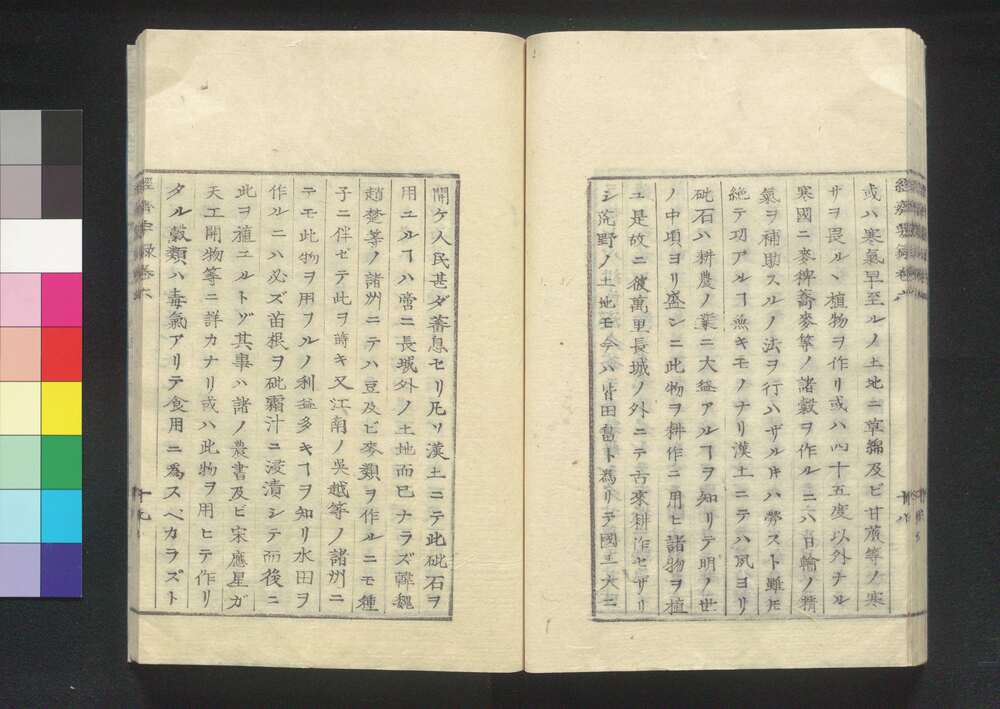 或ハ寒氣早至ルノ土地ニ草綿及ビ甘蔗等ノ寒
サヲ畏ルヽ植物ヲ作リ或ハ四十五度以外ナル
寒國ニ麥稗蕎麥等ノ諸穀ヲ作ルニハ日輪ノ精
氣ヲ補助スルノ法ヲ行ハザル𪜈ハ勞スト雖𪜈
絶テ功アルヿ無キモノナリ漢土ニテハ夙ヨリ
砒石ハ耕農ノ業ニ大益アルヿヲ知リテ明ノ世
ノ中頃ヨリ盛ンニ此物ヲ耕作ニ用ヒ諸物ヲ植
ユ是故ニ彼萬里長城ノ外ニテ古來耕作セザリ
シ荒野ノ土地モ今ハ皆田畠ト爲リテ國土大ニ
十八
經濟要録卷六
開ケ人民甚ダ蕃息セリ凡ソ漢土ニテ此砒石ヲ
用ユルヿハ啻ニ長城外ノ土地而已ナラズ韓魏
趙楚等ノ諸州ニテハ豆及ビ麥類ヲ作ルニモ種
子ニ伴セテ此ヲ蒔キ又江南ノ吳越等ノ諸州ニ
テモ此物ヲ用フルノ利益多キヿヲ知リ水田ヲ
作ルニハ必ズ苗根ヲ砒霜汁ニ浸漬シテ而後ニ
此ヲ植ユルトゾ其事ハ諸ノ農書及ビ宋應星ガ
天工開物等ニ詳カナリ或ハ此物ヲ用ヒテ作リ
タル穀類ハ毒氣アリテ食用ニ爲スベカラズト
十九